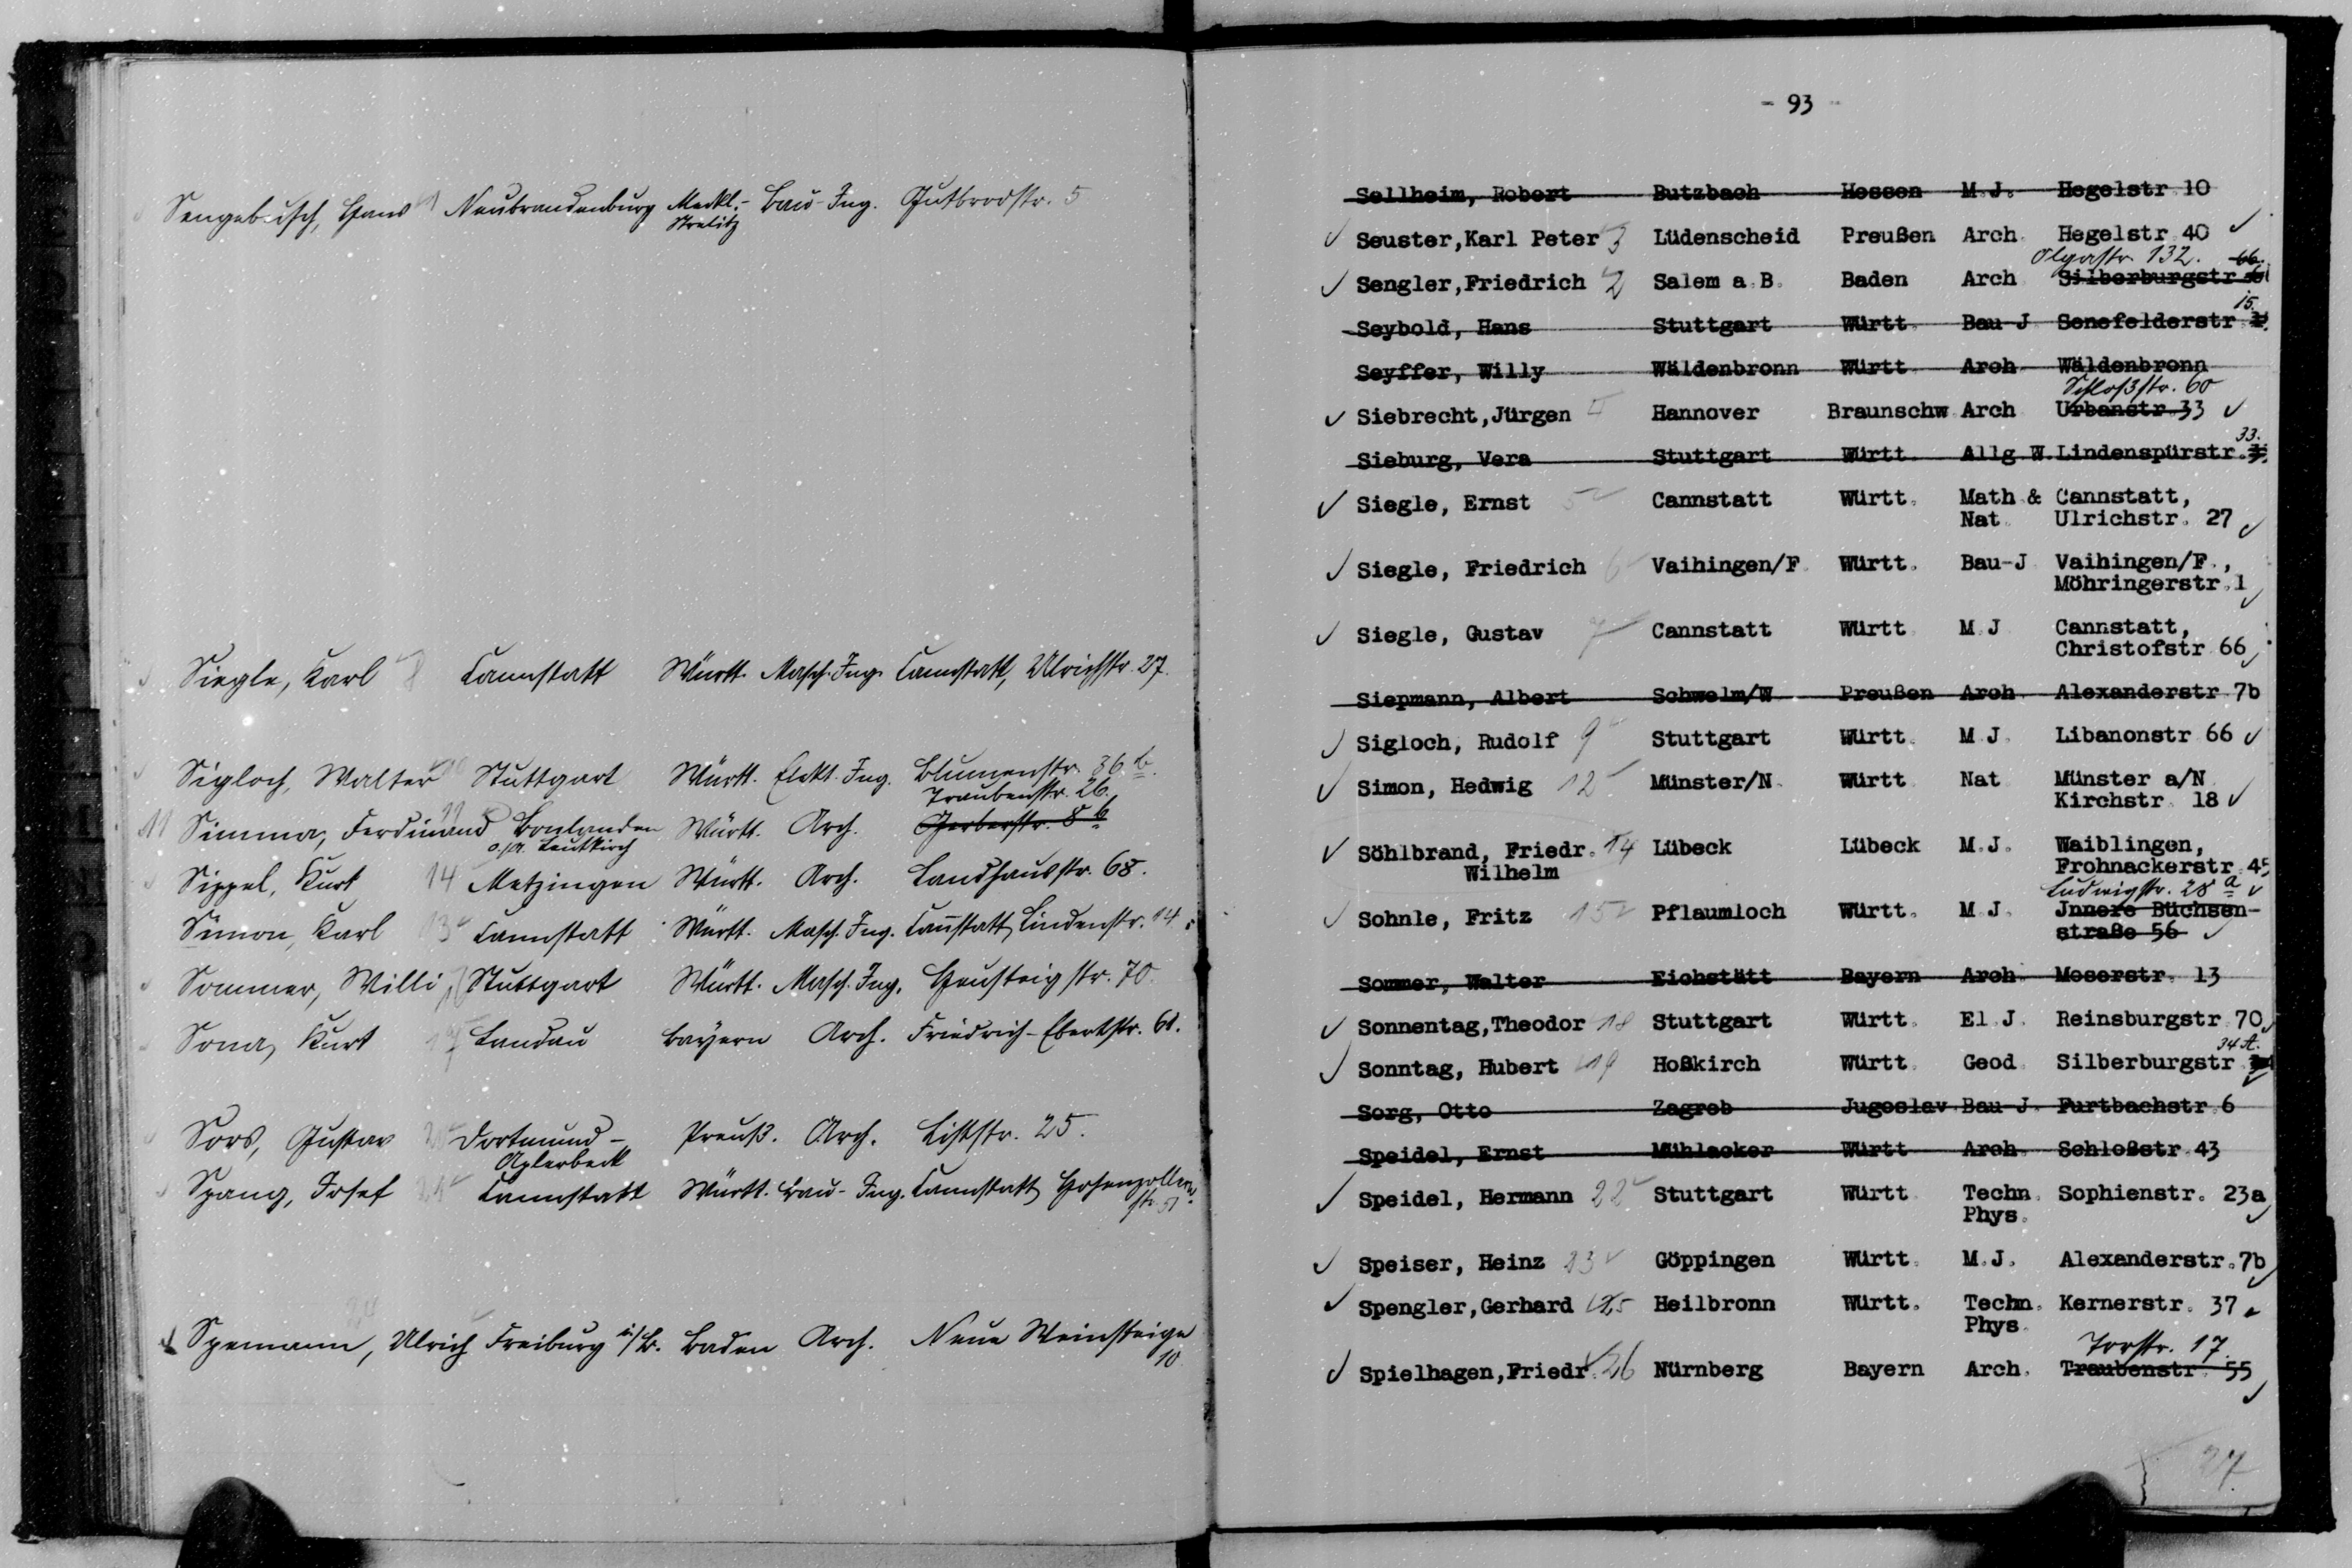 Sengebusch, Hans 1 Neubrandenburg Meckl.- Bau-Ing. Gutbrodstr. 5
Strelitz
Siegle, Karl 8 Cannstatt Württ. Masch. Ing. Cannstatt, Ulrichstr. 27.
Sigloch, Walter 10 Stuttgart Württ. Elekt. Ing. Blumenstr. 36 b.
Traubenstr. 26.
11 Simma, Ferdinand 11 Bonlanden Württ. Arch. Gerberstr. 8 b
o/A. Leutkirch
Sippel, Kurt 14 Metzingen Württ. Arch. Landhausstr. 68.
Simon, Karl 13 Cannstatt Württ. Masch. Ing. Cannstatt, Lindenstr. 14
Sommer, Willi Stuttgart Württ. Masch. Ing. Heusteigstr. 70.
Sona, Kurt 17 Landau Bayern Arch. Friedrich-Ebertstr. 61.
Sors, Gustav Dortmund- Preuß. Arch. Liststr. 25.
Aplerbeck
Spang, Josef Cannstatt Württ. Bau-Ing. Cannstatt, Hohenzollern-
str. 51
24
Spemann, Ulrich Freiburg i/B. Baden Arch. Neue Weinsteige
10
- 93 -
Sellheim, Robert Butzbach Hessen M.J. Hegelstr 10
✓ Seuster,Karl Peter 3 Lüdenscheid Preußen Arch. Hegelstr.40 ✓
Olgastr. 132. 66.
✓ Sengler,Friedrich 2 Salem a.B. Baden Arch Silberburgstr
15.
Seybold, Hans Stuttgart Württ. Bau-J Senefelderstr
Seyffer, Willy Wäldenbronn Württ. Arch Wäldenbronn
Schloßstr. 60
✓ Siebrecht,Jürgen 4 Hannover Braunschw.Arch Urbanstr.33 ✓
33.
Sieburg, Vera Stuttgart Württ. Allg W.Lindenspürstr.
✓ Siegle, Ernst 5 Cannstatt Württ. Math.& Cannstatt,
Nat. Ulrichstr. 27 ✓
✓ Siegle, Friedrich 6 Vaihingen/F. Württ. Bau-J Vaihingen/F.,
Möhringerstr.1 ✓
✓ Siegle, Gustav 7 Cannstatt Württ. M.J Cannstatt,
Christofstr.66 ✓
Siepmann, Albert Schwelm/W Preußen Arch. Alexanderstr.7b
✓ Sigloch, Rudolf 9 Stuttgart Württ. M.J. Libanonstr 66 ✓
✓ Simon, Hedwig 12 Münster/N. Württ Nat Münster a/N.
Kirchstr. 18 ✓
✓ Söhlbrand, Friedr. 14 Lübeck Lübeck M.J. Waiblingen,
Wilhelm Frohnackerstr.45
Ludwigstr. 28 a ✓
✓ Sohnle, Fritz 15 Pflaumloch Württ. M.J. Jnnere Büchsen-
straße 56 ✓
Sommer, Walter Eichstätt Bayern Arch. Moserstr. 13
✓ Sonnentag,Theodor 18 Stuttgart Württ. El.J. Reinsburgstr.70 ✓
34 A.
✓ Sonntag, Hubert 19 Hoßkirch Württ. Geod. Silberburgstr. ✓
Sorg, Otto Zagreb Jugoslav.Bau J. Furtbachstr.6
Speidel, Ernst Mühlacker Württ Arch. Schloßstr.43
✓ Speidel, Hermann 22 Stuttgart Württ Techn. Sophienstr. 23a
Phys. ✓
✓ Speiser, Heinz 23 Göppingen Württ. M.J. Alexanderstr.7b ✓
✓ Spengler,Gerhard 25 Heilbronn Württ. Techn. Kernerstr. 37
Phys.
Torstr. 17.
✓ Spielhagen,Friedr. 26 Nürnberg Bayern Arch. Traubenstr 55 ✓
27.